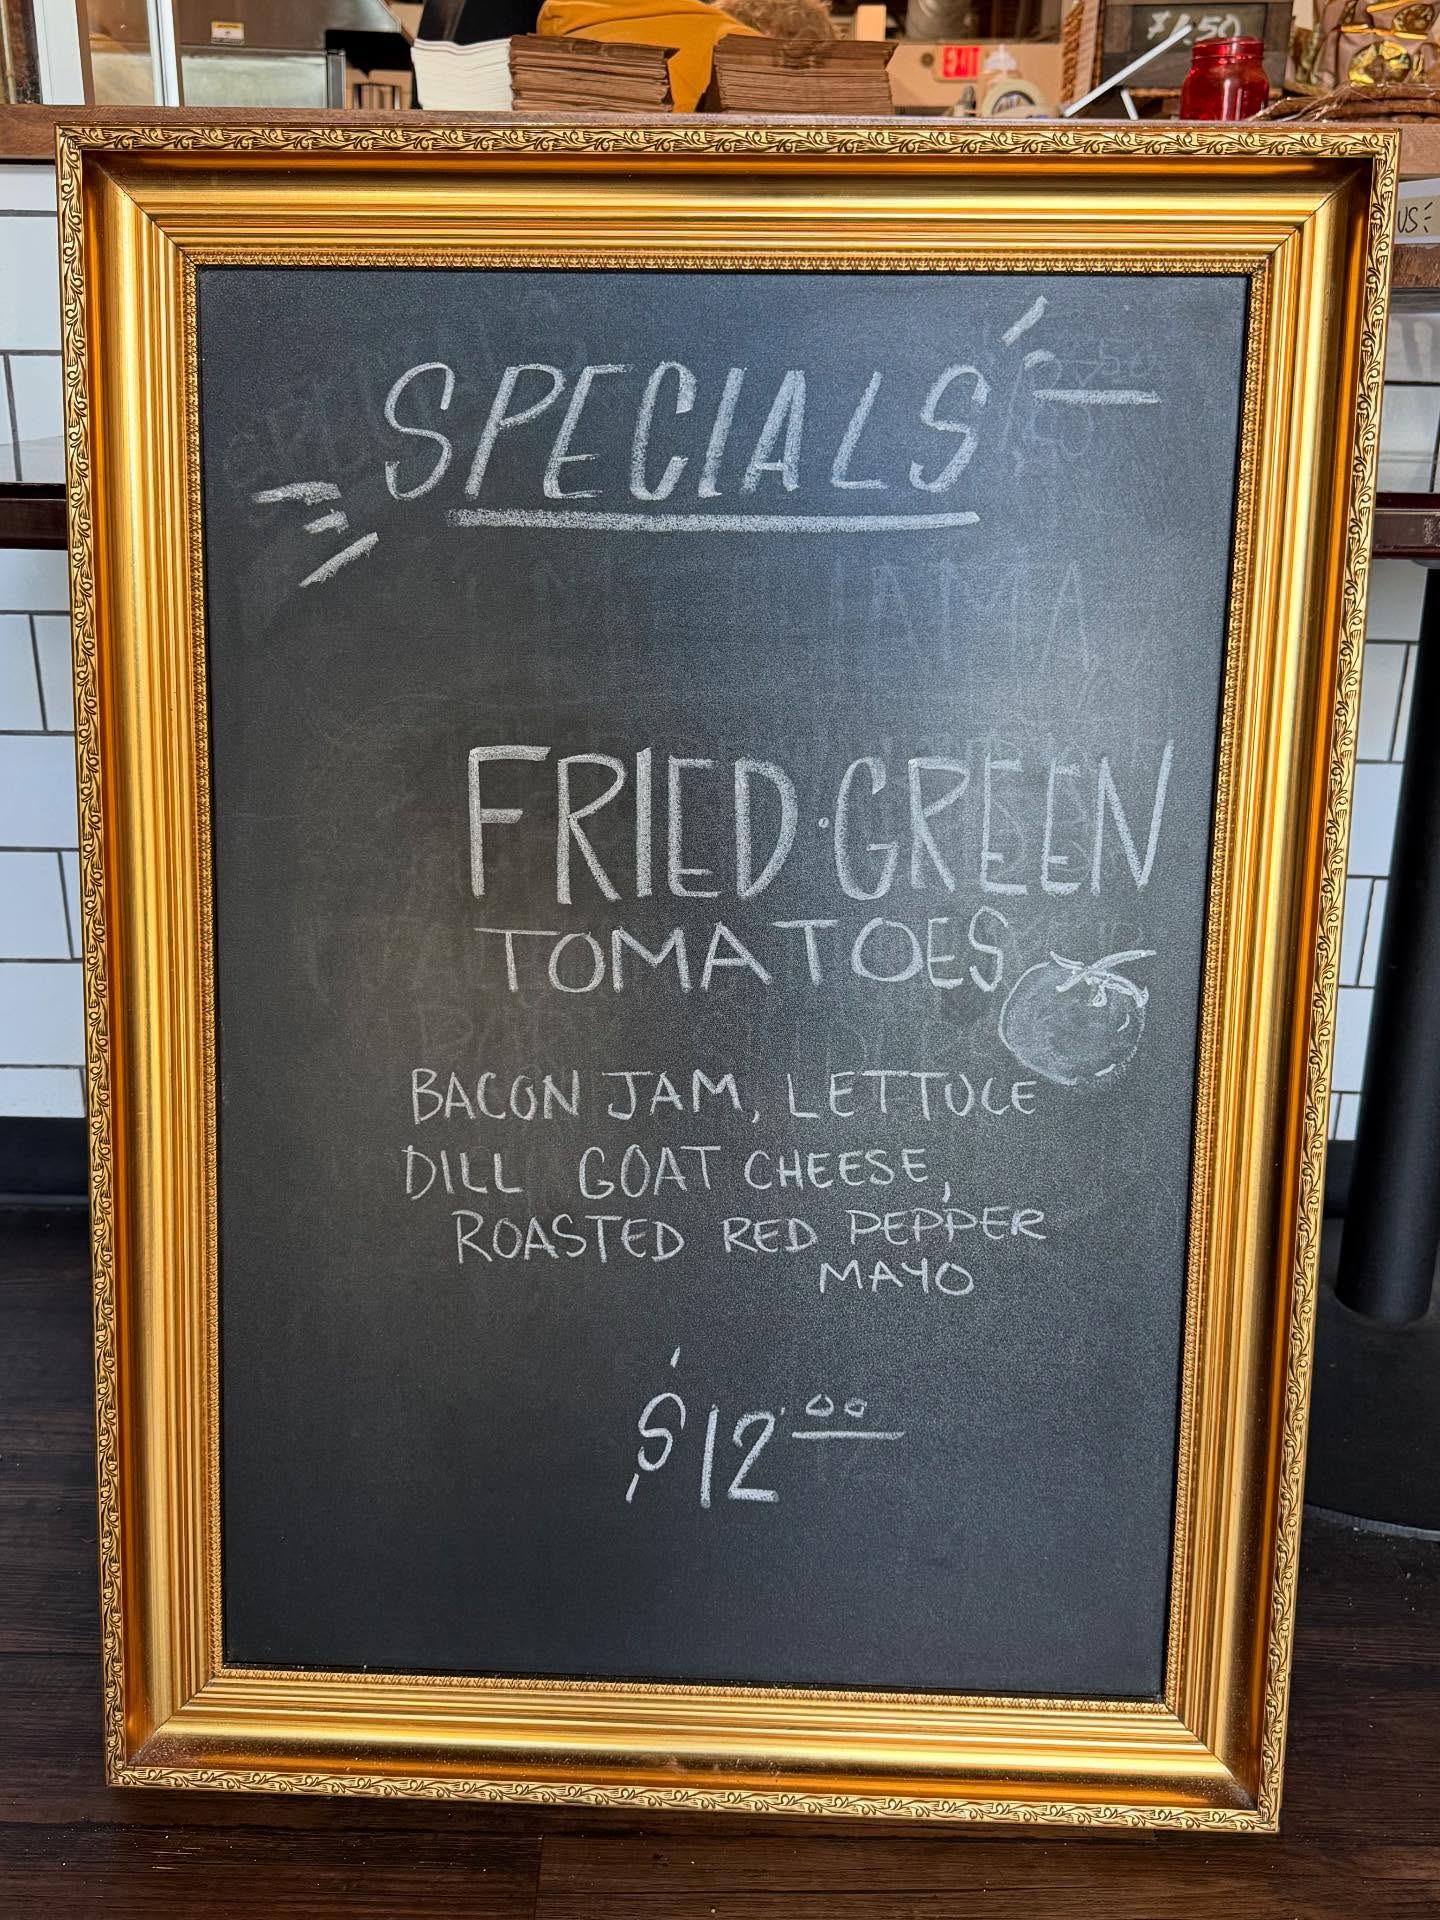 $1.50
EXIT
US
SPECIALS
FRIED·GREEN
TOMATOES
BACON JAM, LETTUCE
DILL GOAT CHEESE,
ROASTED RED PEPPER
MAYO
$12.00